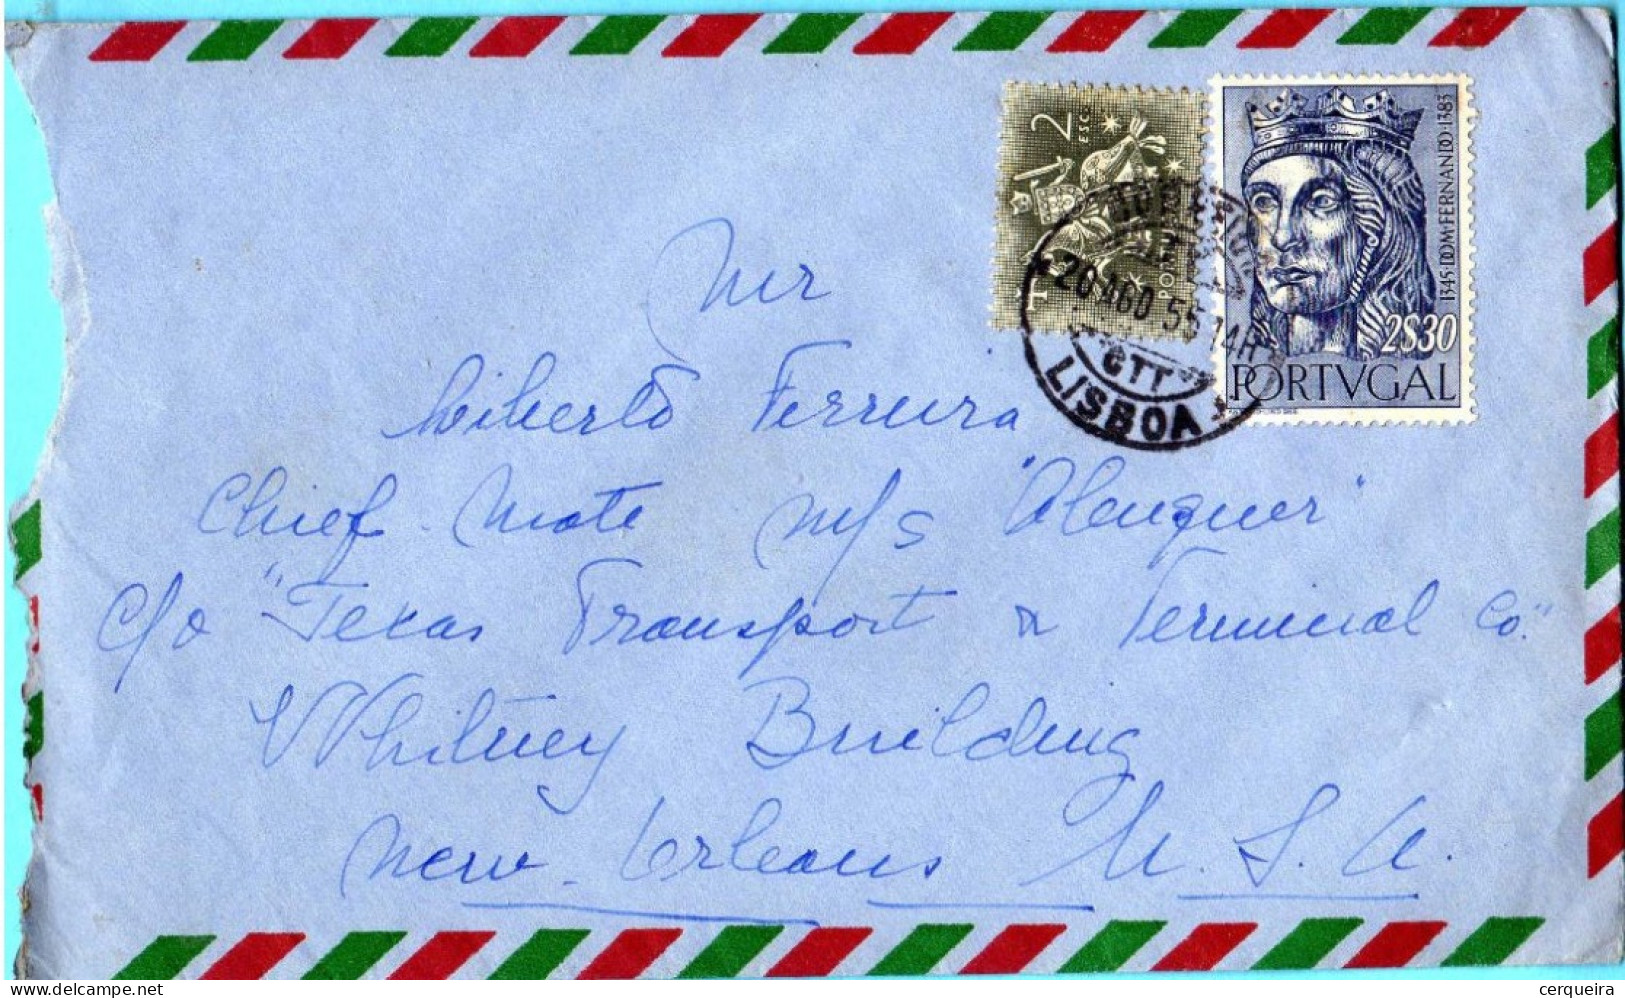 2 ESC.
1345·DOM·FERNANDO·1383
2S30
PORTVGAL
20 AGO 55 14H
CTT
LISBOA
Mr
Liberto Ferreira
Chief Mate M/S "Alenquer"
c/o "Texas Transport & Terminal Co."
Whitney Building
New Orleans U. S. A.
delcampe.net
cerqueira